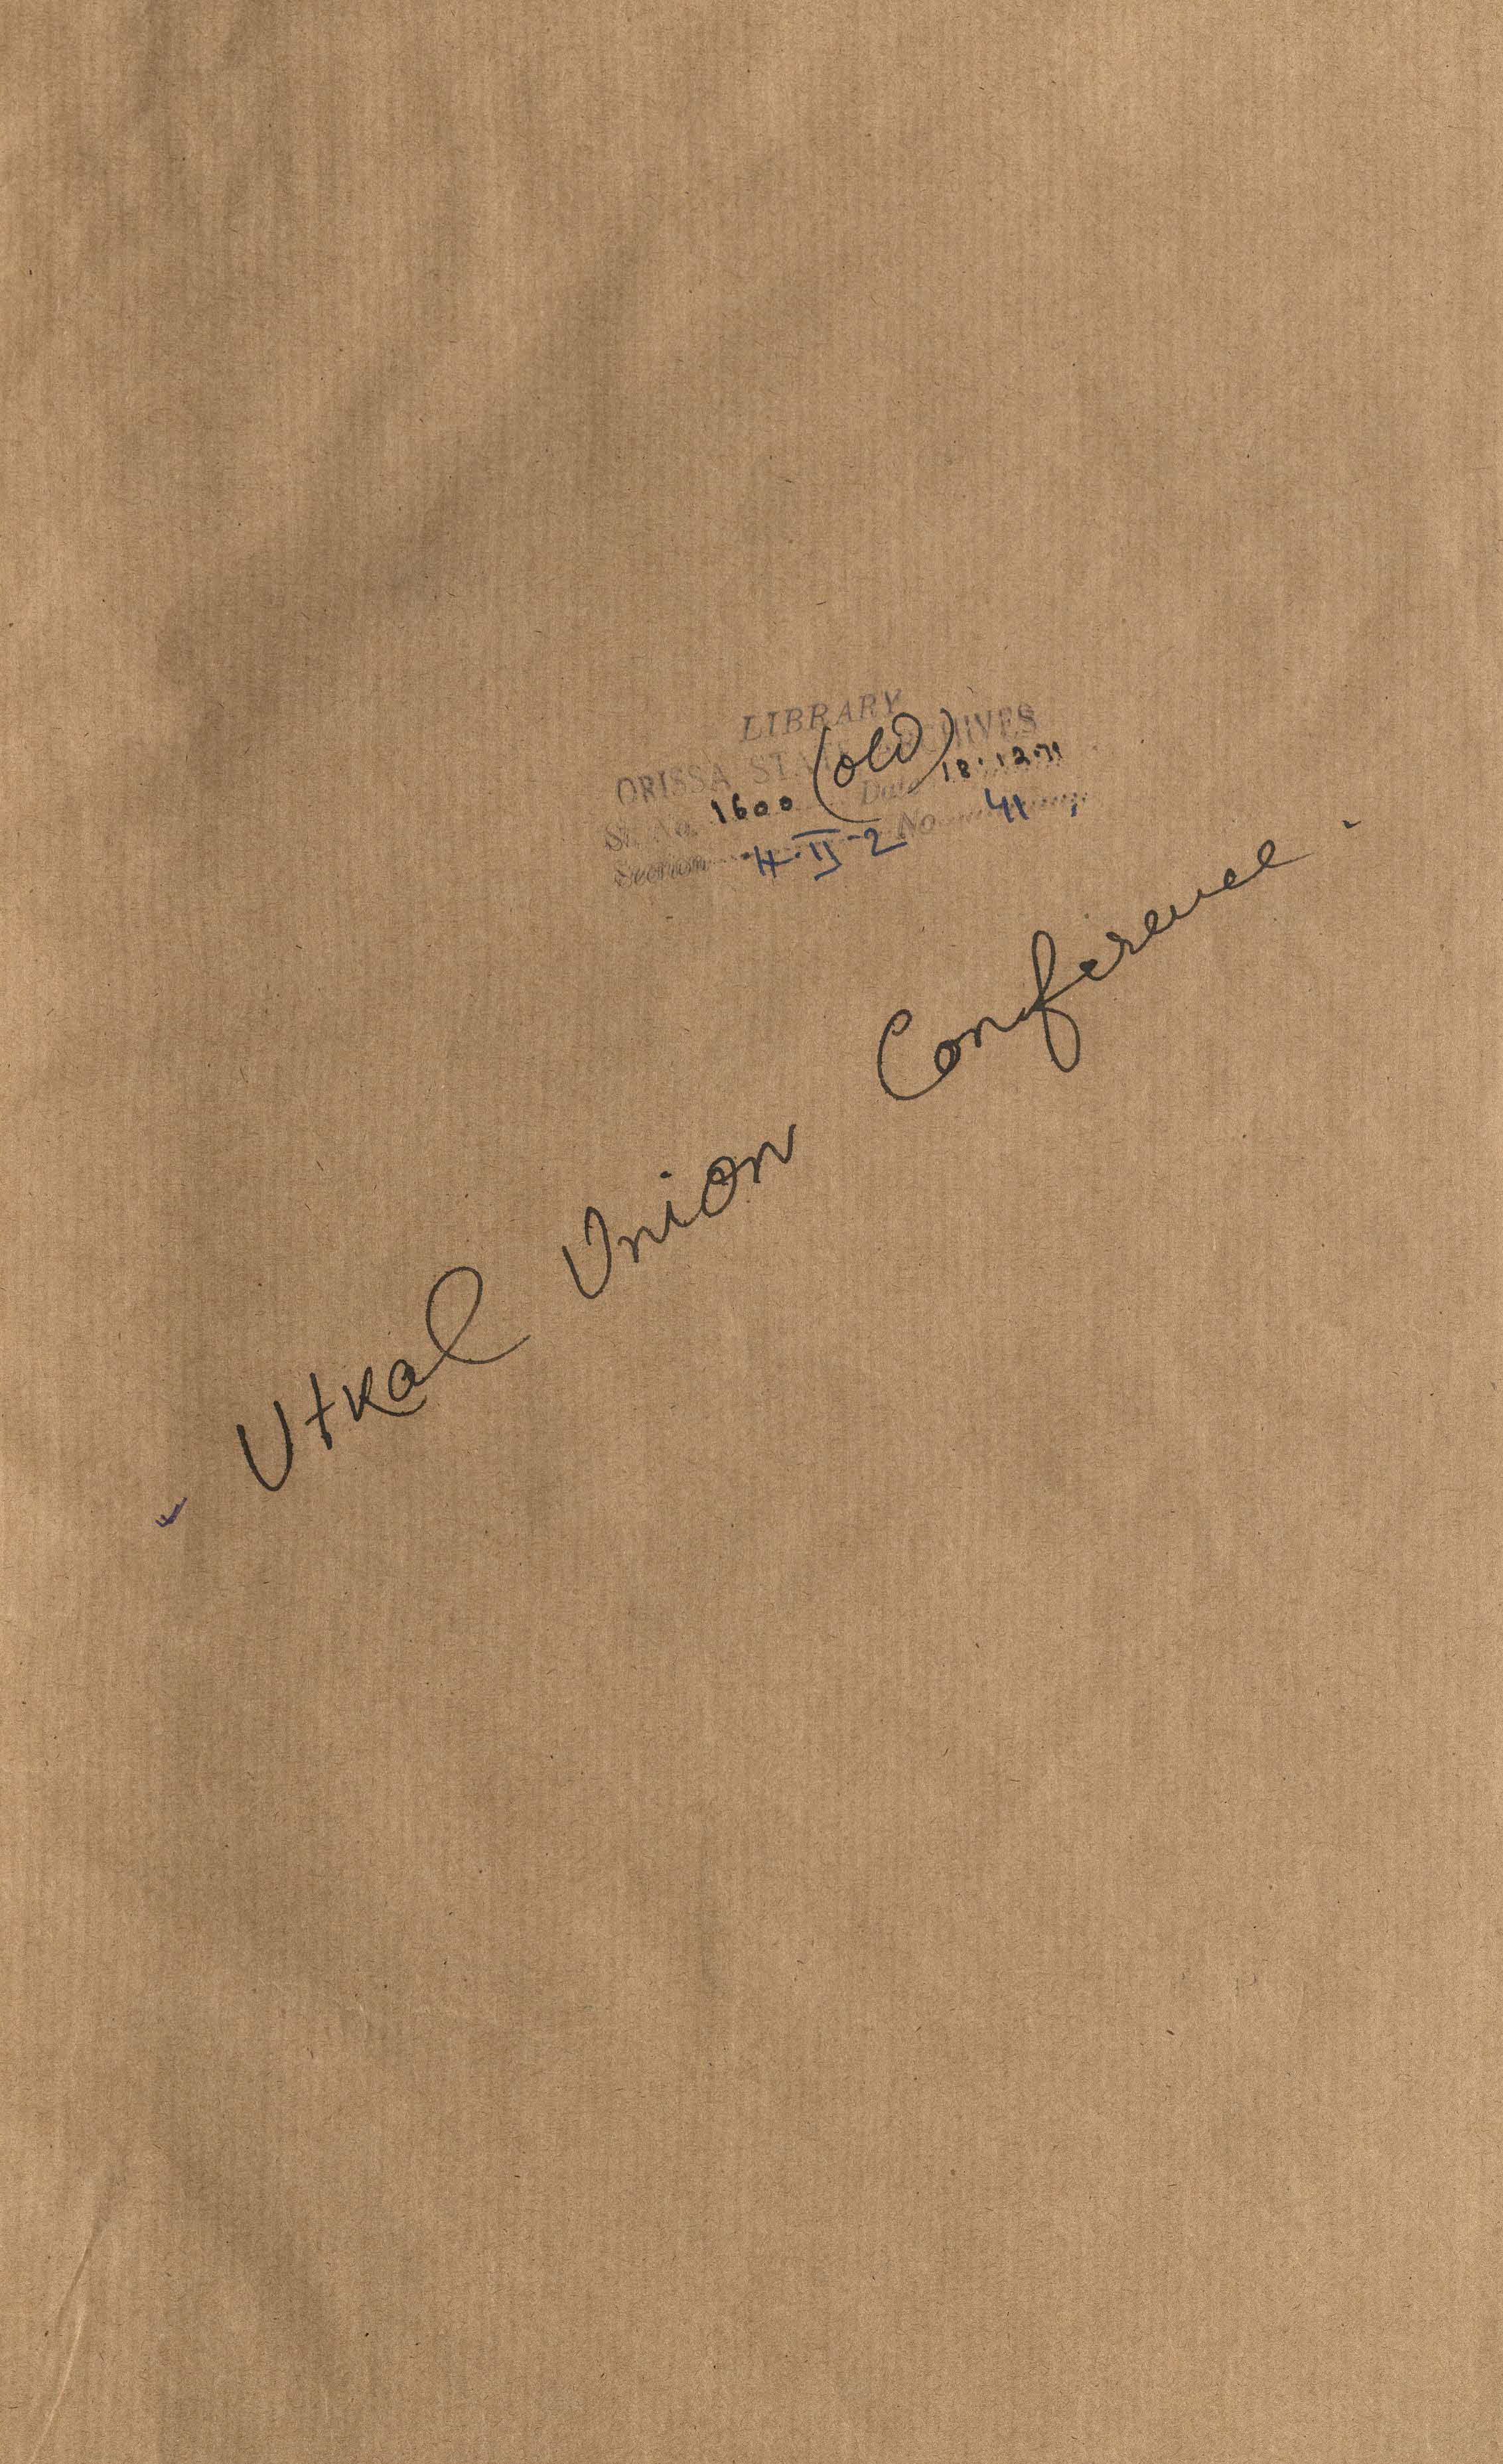 LIBRARY
ORISSA STATE ARCHIVES
(OLD)
Sl. No. 1600 Date 18.12.71
Section H-II-2 No 41
Utkal Union Conference